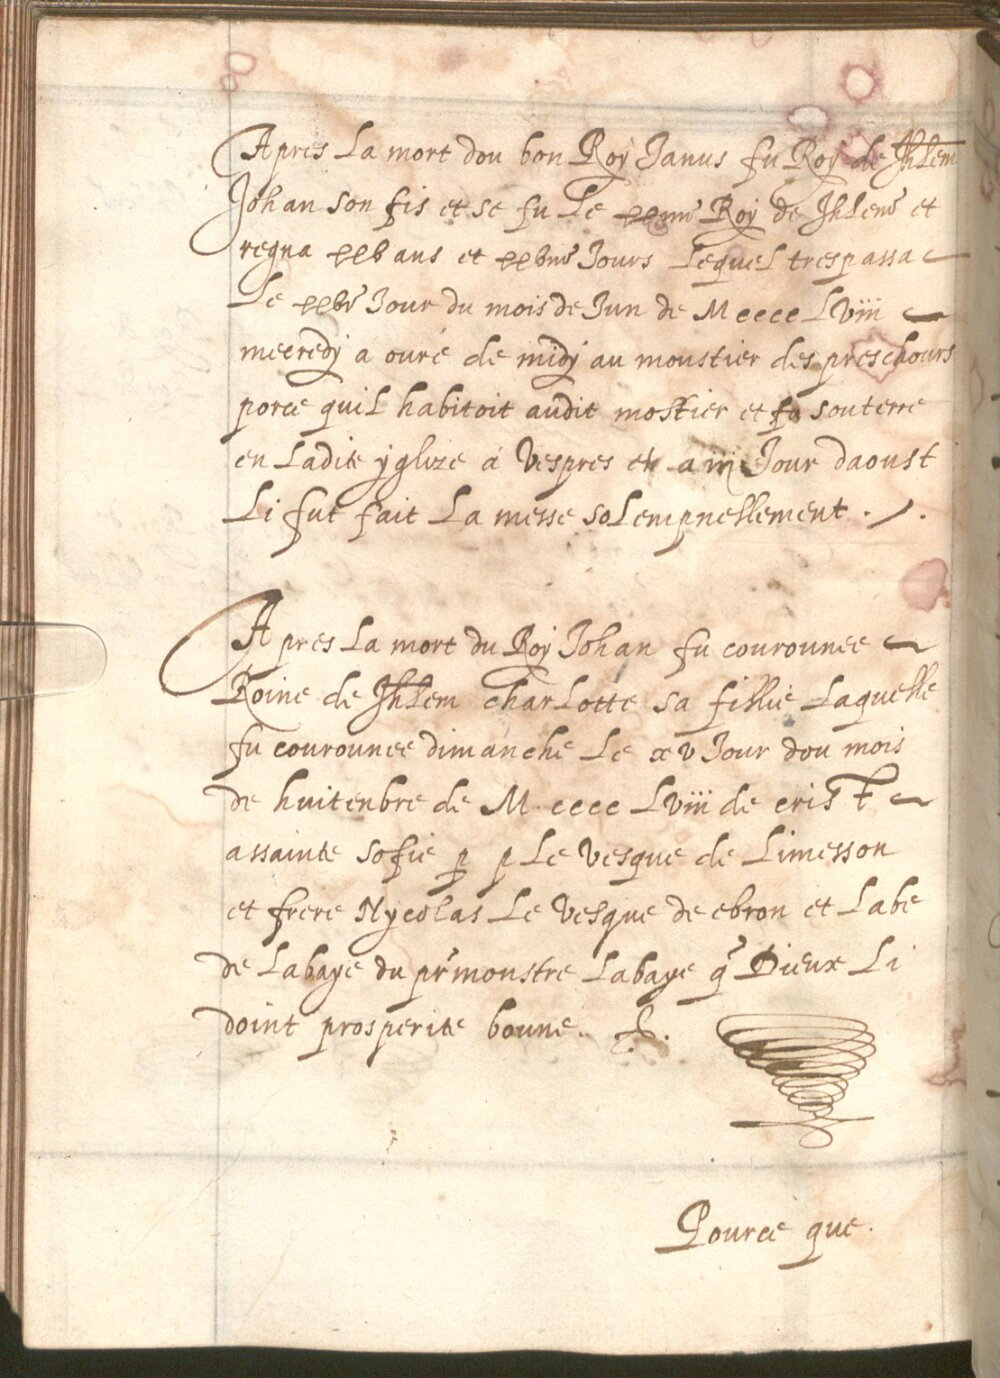 Apres La mort dou bon Roy Janus fu Roy de Jhlem
Johan son fis et se fu Le Roy de Jhlem et
regna ans et Jours Lequel trespassa
Le Jour du mois de Jun de M cccc Lviii
mecredy a oure de midy au moustier des preschours
porce quil habitoit audit mostier et fu souterre
en Ladite yglize a Vespres et a iij Jour daoust
Li fut fait La messe solempnellement . / .
Apres La mort du Roy Johan fu courounee
Roine de Jhlem CharLotte sa fillie Laquelle
fu courounee dimanche Le xv Jour dou mois
de huitenbre de M cccc Lviii de crist
assainte sofie p p Le Vesque de Limesson
et frere Nycolas Le Vesque de ebron et Labe
de Labaye du prmonstre Labaye q Dieux Li
doint prosperite boune.
Pource que.